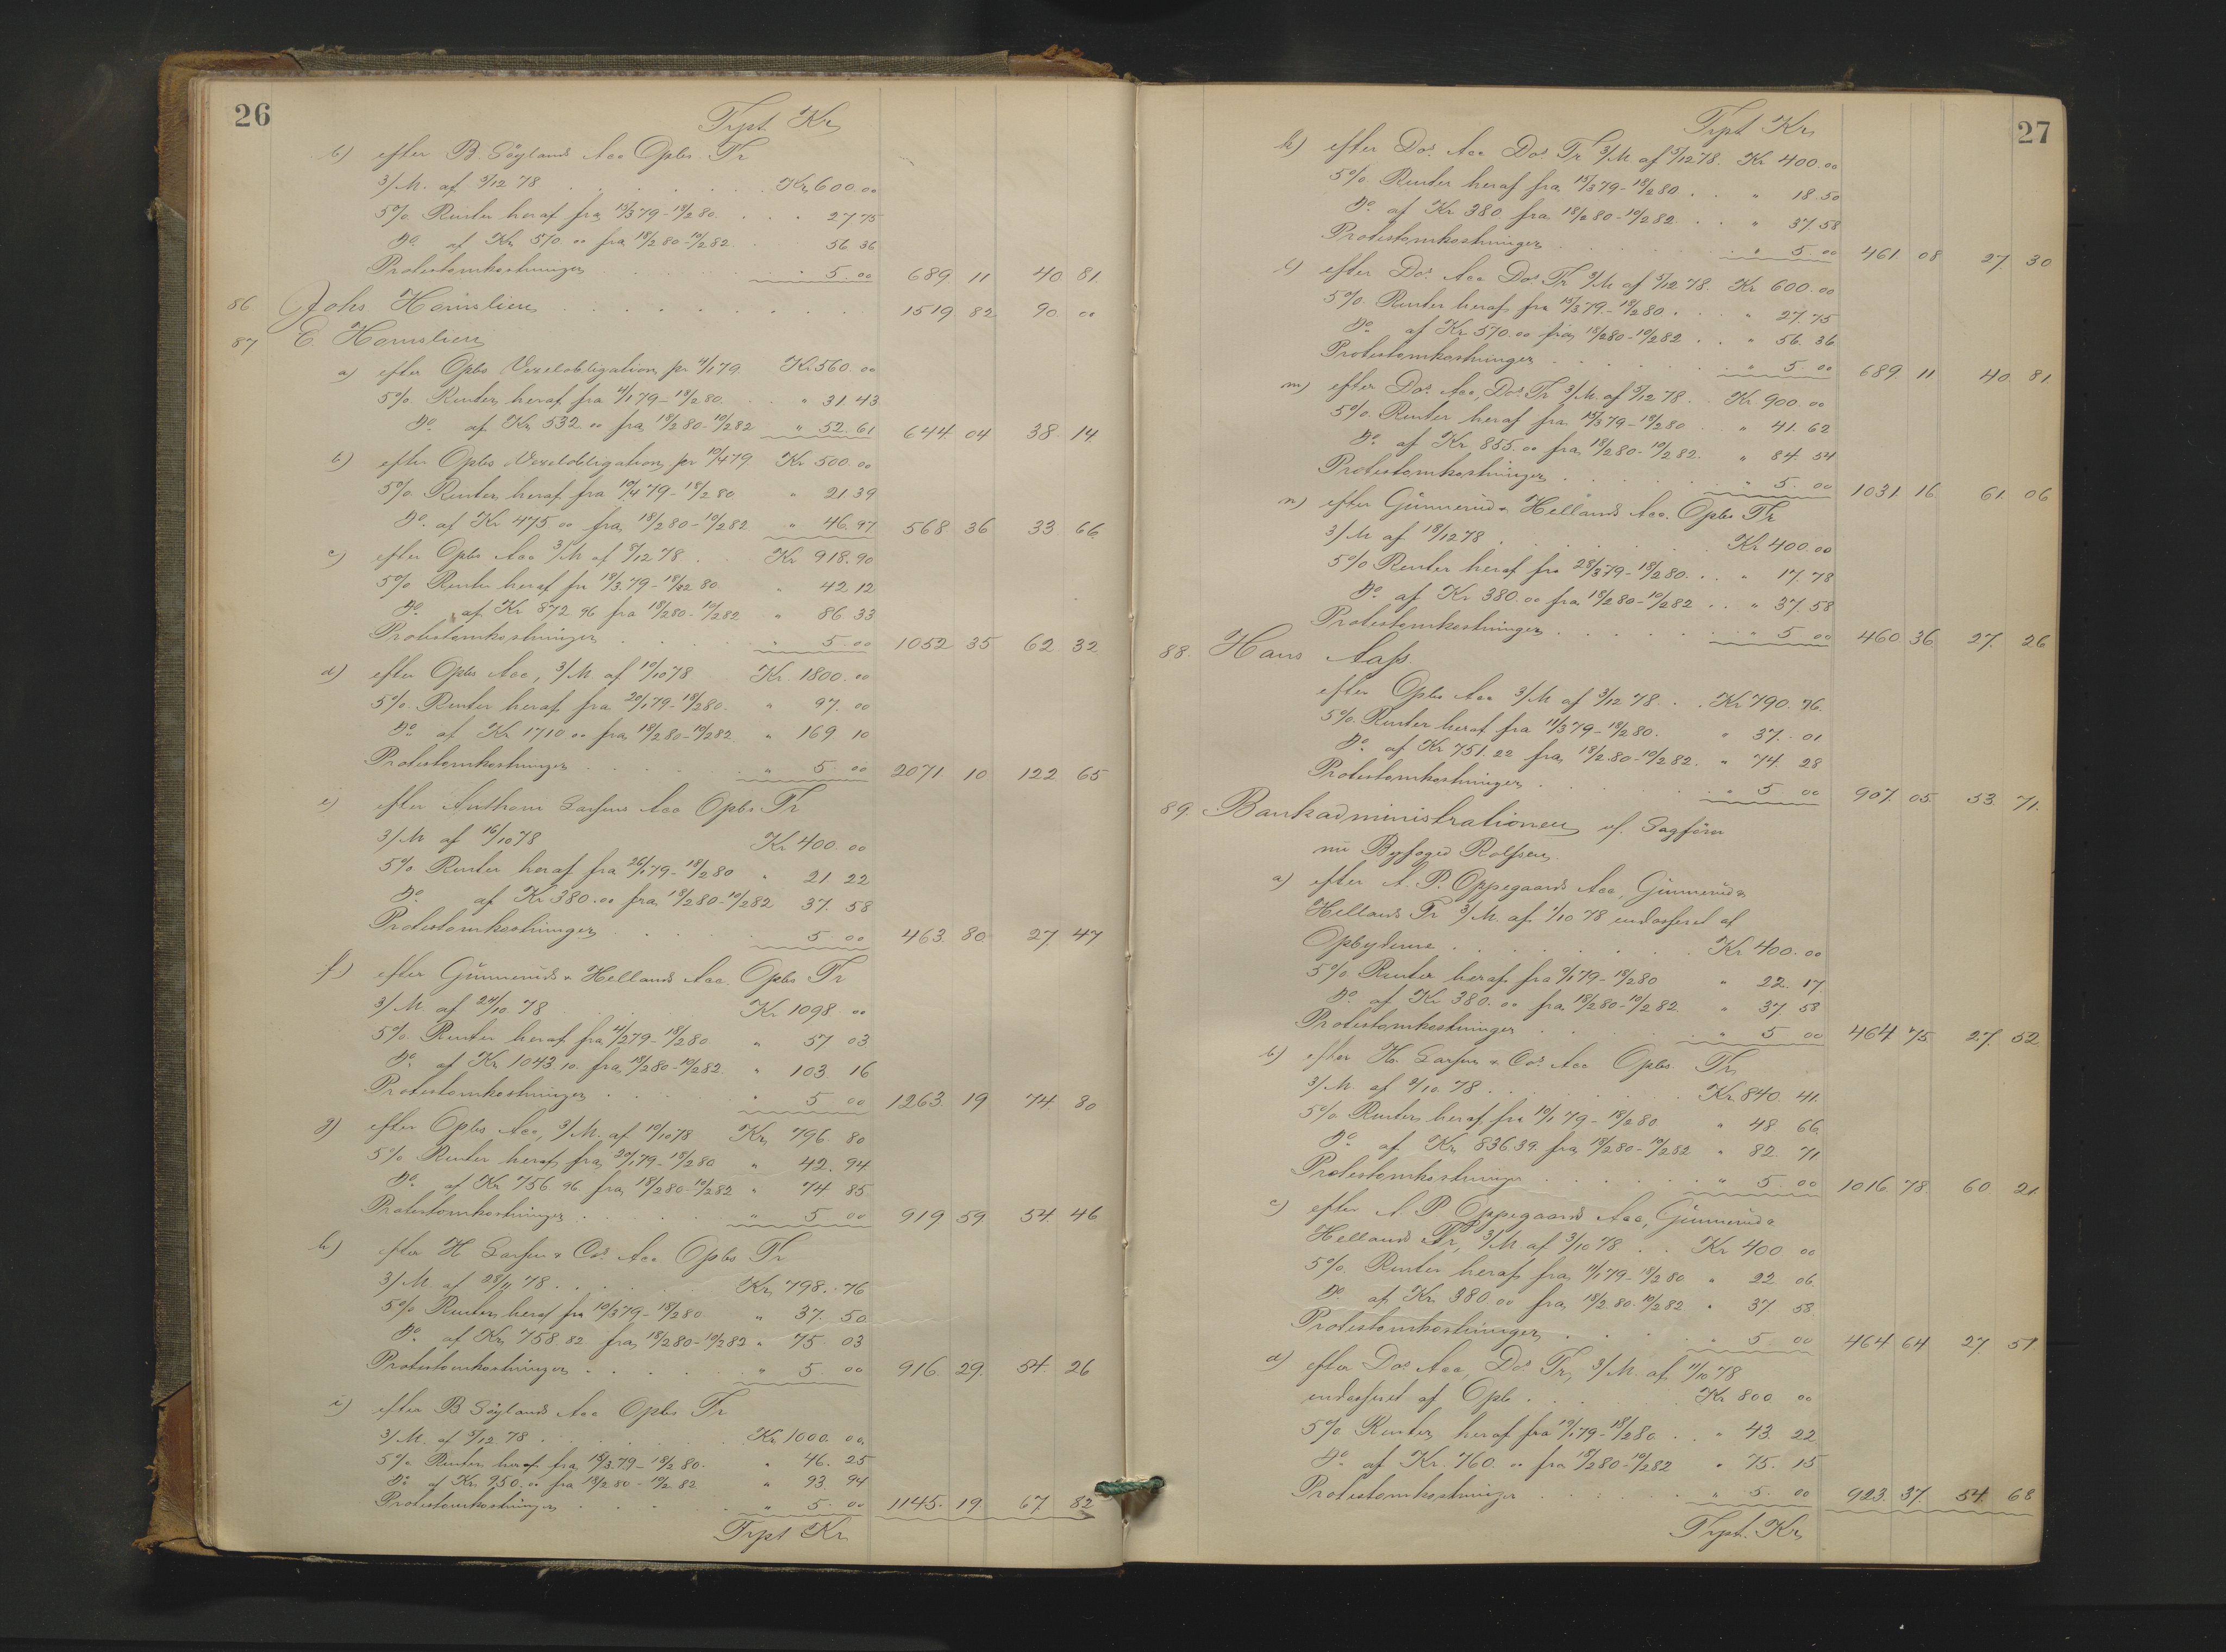 26
Trpt Kr
b) efter B. Söylands Acc Opbs. Tr
3/M. af 5/12 78 Kr 600.00
5% Renter heraf fra 15/3 79-18/2 80 " 27 75
Do. af Kr 570.00 fra 18/2 80-10/2 82 56 36
Protestomkostninger " 5.00 689 11 40 81.
86 Johs Hornslien 1519 82 90 00
87 E. Hornslien
a) efter Opbs Vexelobligation pr 4/1 79. Kr 560.00
5% Renter heraf fra 4/1 79-18/2 80. " 31.43
Do. af Kr 532.00 fra 18/2 80-10/2 82 " 52.61 644 04 38 14
b) efter Opbs Vexelobligation pr 10/4 79. Kr 500.00
5% Renter heraf fra 10/4 79-18/2 80 " 21.39
Do. af Kr 475 00 fra 18/2 80-10/2 82 " 46.97 568 36 33 66
c) efter Opbs Acc 3/M af 8/12 78 Kr 918.90
5% Renter heraf fra 18/3 79-18/2 80 " 42 12
Do. af Kr 872 96 fra 18/2 80-10/2 82 " 86.33
Protestomkostninger " 5.00 1052 35 62 32
d) efter Opbs Acc, 3/M af 10/10 78 Kr. 1800.00
5% Renter heraf fra 20/1 79-18/2 80. " 97.00
Do. af Kr 1710 00 fra 18/2 80-10/2 82 " 169 10
Protestomkostninger " 5 00 2071 10 122 65
e) efter Anthoni Larsens Acc Opbs Tr
3/M af 16/10 78 Kr 400.00
5% Renter heraf fra 26/1 79-18/2 80 " 21 22
Do. af Kr 380.00 fra 18/2 80-10/2 82 37. 58
Protestomkostninger 5 00 463 80 27 47
f) efter Gunneruds & Hellands Acc. Opbs Tr
3/M. af 24/10 78 Kr 1098.00
5% Renter heraf fra 4/2 79-18/2 80 " 57 03
Do. af Kr 1043.10 fra 18/2 80-10/2 82 " 103 16
Protestomkostninger " 5 00 1263 19 74 80
g) efter Opbs Acc, 3/M. af 10/10 78 Kr 796 80
5% Renter heraf fra 20/1 79-18/2 80 " 42.94
Do. af Kr 756.96. fra 18/2 80-10/2 82 " 74 85
Protestomkostninger " 5 00 919 59 54 46
h) efter H Larsen & Cos. Acc Opbs Tr
3/M af 28/11 78 Kr 798.76
5% Renter heraf fra 10/3 79-18/2 80 " 37. 50
Do. af Kr 758.82 fra 18/2 80-10/2 82 " 75. 03
Protestomkostninger " 5. 00 916. 29. 54. 26
i) efter B Söylands Acc Opbs Tr
3/M. af 5/12 78 Kr 1000.00
5% Renter heraf fra 15/3 79-18/2 80. " 46. 25
Do. af Kr. 950.00 fra 18/2 80-10/2 82 " 93 94
Protestomkostninger " 5. 00 1145. 19 67 82
Trpt Kr
27
Trpt Kr
k) efter Dos. Acc Dos. Tr 3/M af 5/12 78. Kr 400.00
5% Renter heraf fra 15/3 79-18/2 80 " 18.50
Do. af Kr 380. fra 18/2 80-10/2 82 " 37.58
Protestomkostninger " 5 00 461 08 27 30
l) efter Dos. Acc Dos. Tr 3/M af 5/12 78. Kr 600.00
5% Renter heraf fra 15/3 79.-18/2 80 " 27.75
Do. af Kr 570.00 fra 18/2 80-10/2 82 " 56. 36
Protestomkostninger " 5.00 689 11 40 81
m) efter Dos. Acc, Dos. Tr 3/M. af 5/12 78 Kr 900.00
5% Renter heraf fra 15/3 79-18/2 80 " 41. 62
Do. af Kr 855.00 fra 18/2 80-10/2 82. " 84. 54
Protestomkostninger " 5.00 1031 16 61 06
n) efter Gunneruds & Hellands Acc. Opbs Tr
3/M af 18/12 78 Kr 400.00
5% Renter heraf fra 28/3 79-18/2 80. " 17. 78
Do. af Kr 380.00 fra 18/2 80-10/2 82 " 37. 58
Protestomkostninger " 5 00 460. 36 27. 26
88. Hans Aass
efter Opbs Acc 3/M af 3/12 78 Kr 790.76.
5% Renter heraf fra 11/3 79-18/2 80. " 37. 01
Do. af Kr 751.22 fra 18/2 80-10/2 82. " 74. 28
Protestomkostninger " 5 00 907. 05. 53. 71.
89. Bankadministrationen v/ Sagförer
nu Byfoged Rolfsen.
a) efter A. P. Oppegaards Acc, Gunneruds &
Hellands Tr 3/M. af 1/10 78 endosseret af
Opbyderne Kr 400.00
5% Renter heraf fra 9/1 79-18/2 80 " 22. 17
Do. af Kr 380.00 fra 18/2 80-10/2 82 " 37 58
Protestomkostninger " 5 00 464 75 27. 52
b) efter H. Larsen & Cos. Acc Opbs. Tr
3/M. af 9/10 78 Kr. 840. 41.
5% Renter heraf fra 19/1 79-18/2 80 " 48 66.
Do. af Kr 836.39. fra 18/2 80-10/2 82 " 82. 71
Protestomkostninger " 5 00 1016. 78. 60. 21
c) efter A. P Oppegaards Acc, Gunneruds &
Hellands Tr, 3/M af 3/10 78 Kr 400 00
5% Renter heraf fra 11/1 79-18/2 80 " 22 06
Do. af Kr 380.00 fra 18/2 80-10/2 82 " 37 58.
Protestomkostninger " 5 00 464 64 27 51
d) efter Dos. Acc, Dos. Tr, 3/M. af 11/10 78
endosseret af Opb. Kr 800 00
5% Renter heraf fra 19/1 79-18/2 80 " 43. 22
Do. af Kr. 760.00 fra 18/2 80-10/2 82 " 75. 15
Protestomkostninger " 5. 00 923. 37. 54. 68
Trpt. Kr